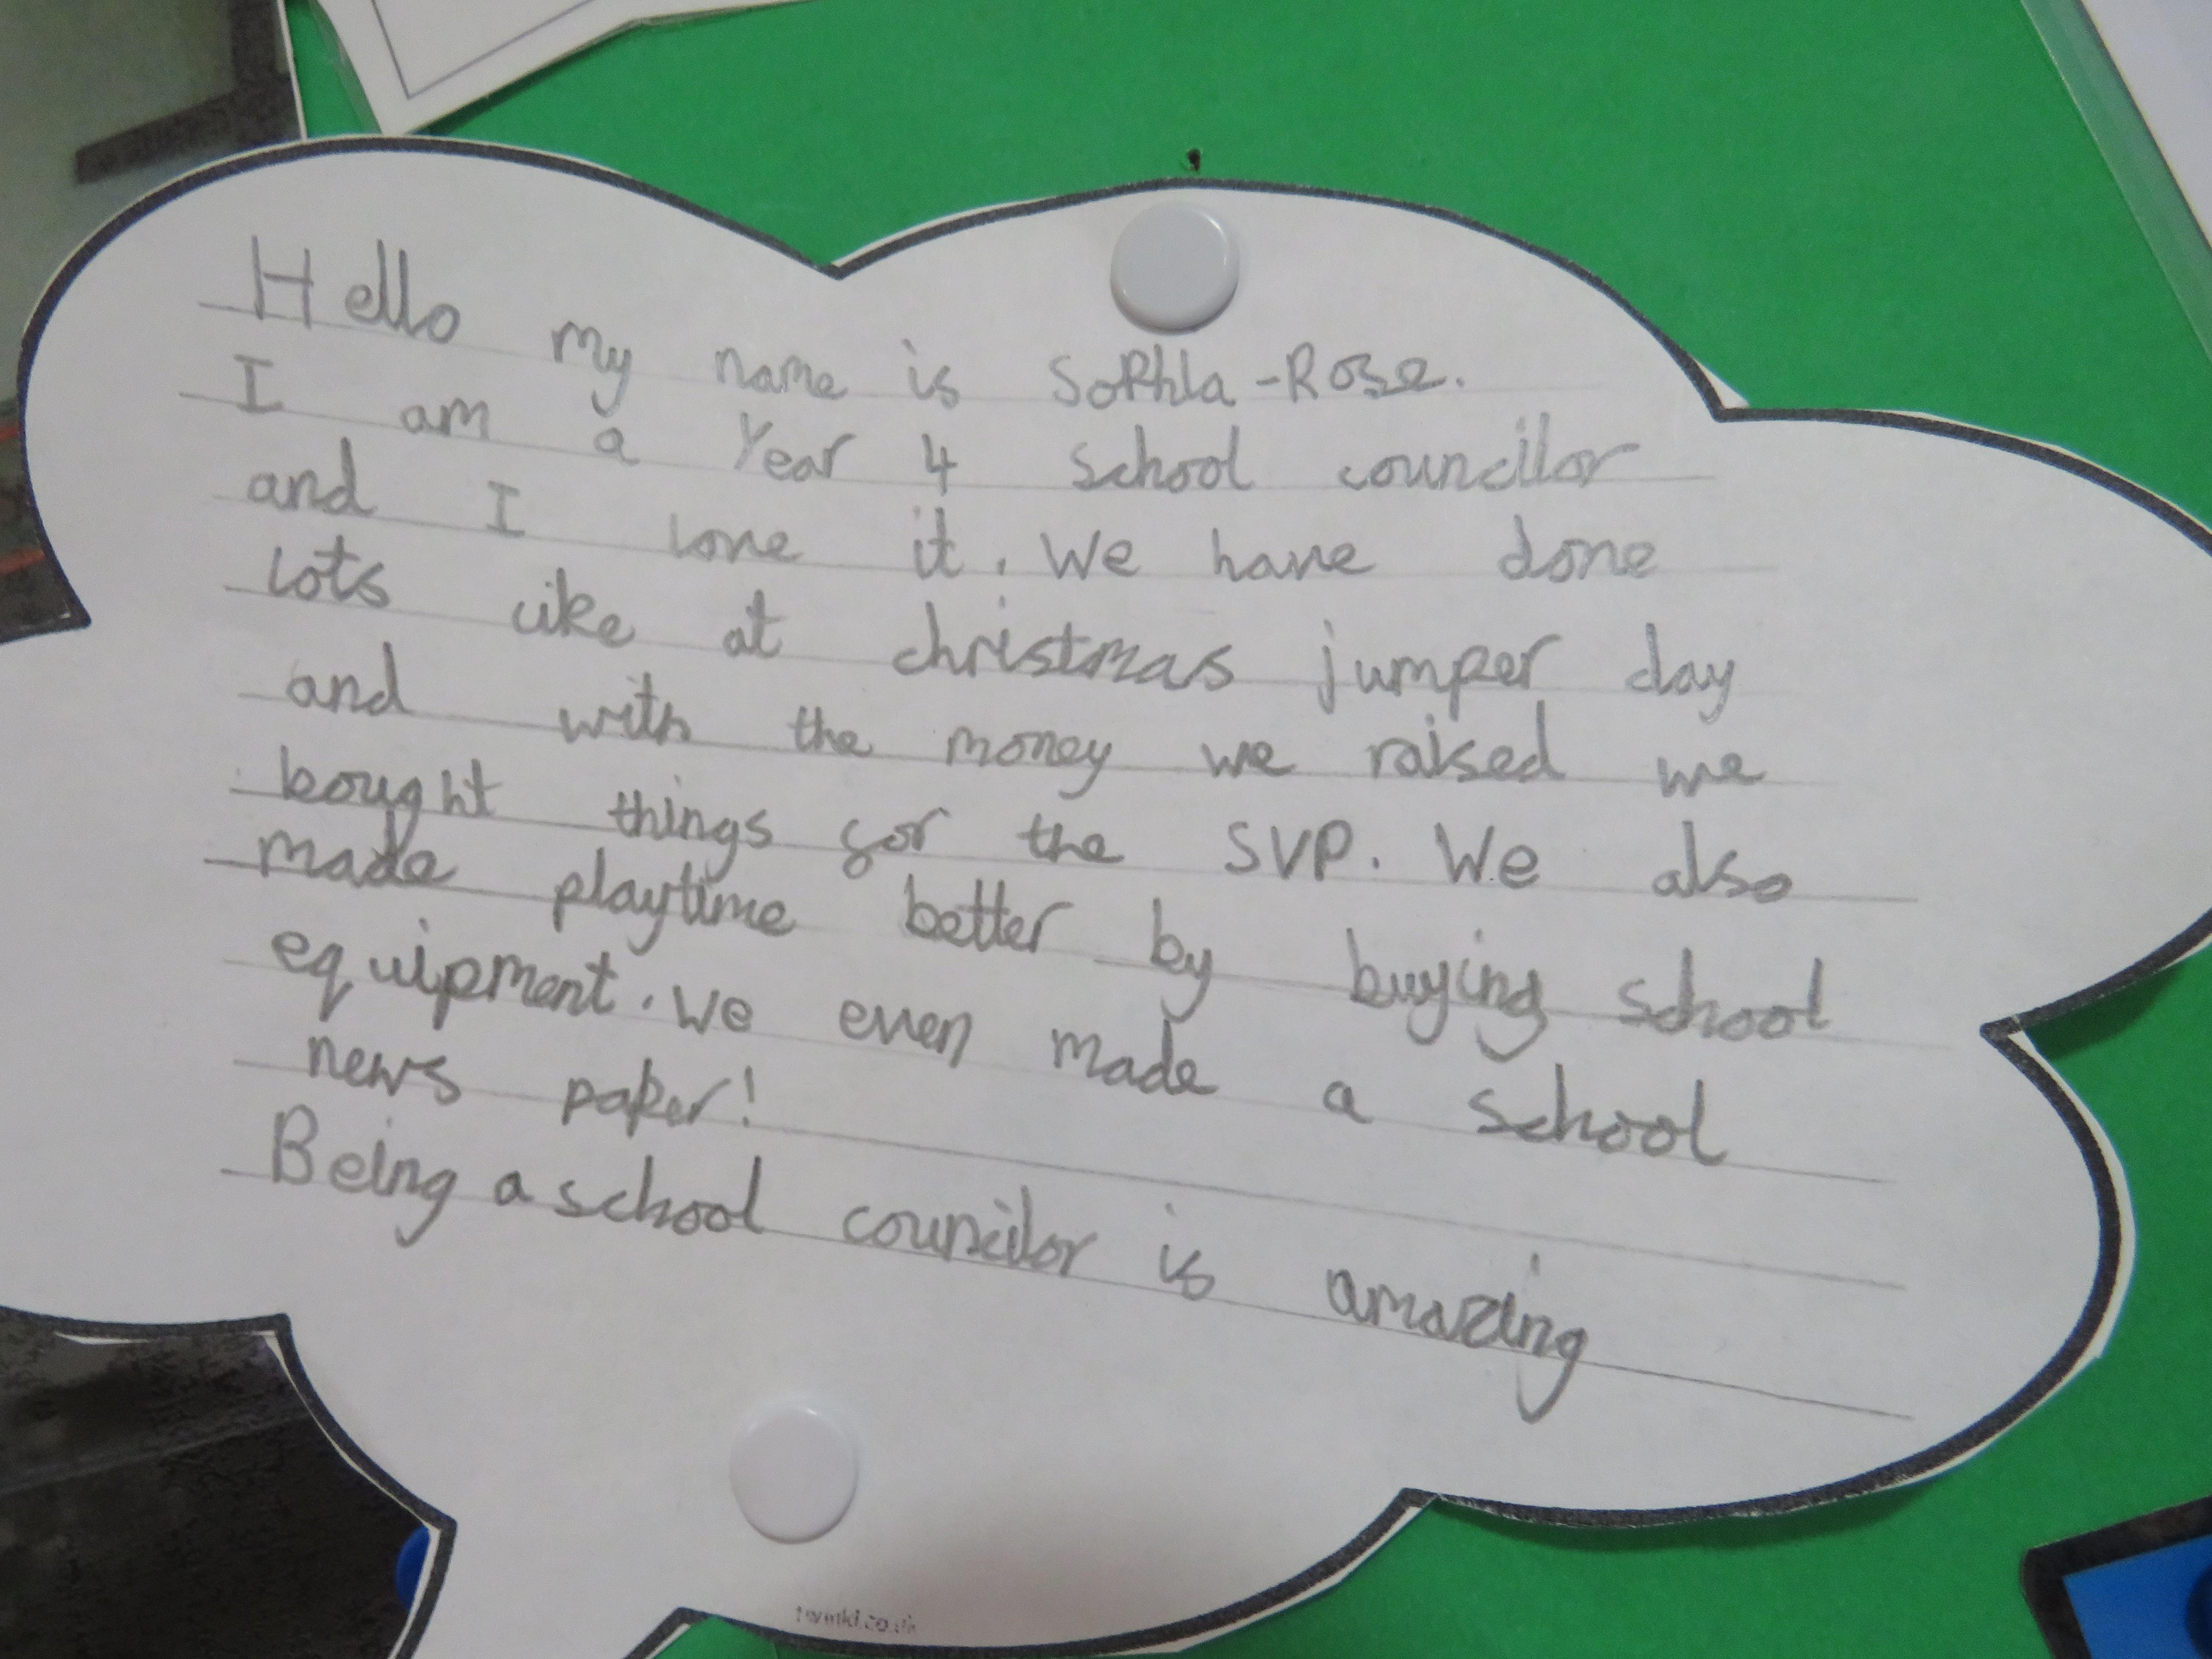 Hello my name is Sophia-Rose.
I am a Year 4 school councilor
and I love it. We have done
lots like at christmas jumper day
and with the money we raised we
bought things for the SVP. We also
made playtime better by buying school
equipment. We even made a school
news paper!
Being a school councilor is amazing
twinkl.co.uk